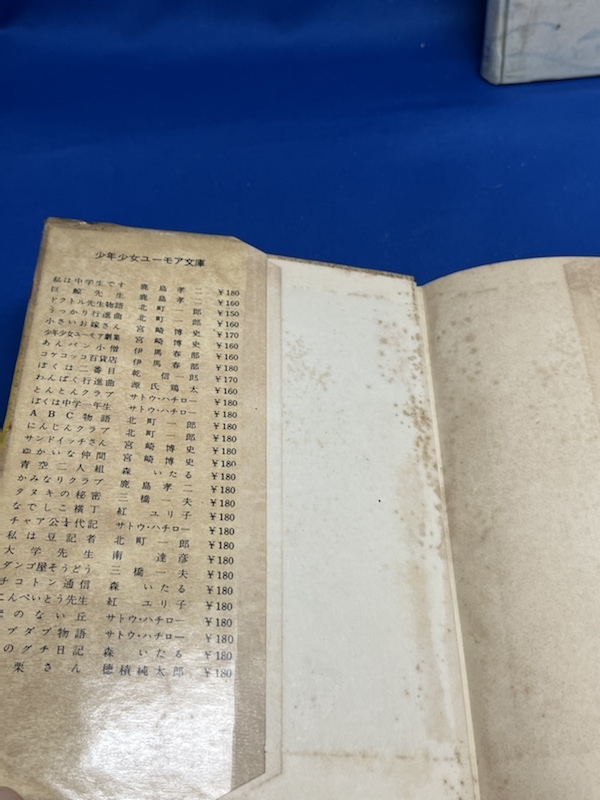 少年少女ユーモア文庫
私は中学生です 鹿島孝二 ¥180
巨鯨先生 鹿島孝二 ¥160
ドクトル先生物語 北町一郎 ¥150
うっかり行進曲 北町一郎 ¥160
小さいお嫁さん 宮崎博史 ¥170
少年少女ユーモア劇集 宮崎博史 ¥160
あんパン小僧 伊馬春部 ¥160
コケコッコ百貨店 伊馬春部 ¥180
ぼくは二番目 乾信一郎 ¥170
わんぱく行進曲 源氏鶏太 ¥160
とんとんクラブ サトウ・ハチロー ¥180
ぼくは中学一年生 サトウ・ハチロー ¥180
ABC物語 北町一郎 ¥180
にんじんクラブ 北町一郎 ¥180
サンドイッチさん 宮崎博史 ¥180
ゆかいな仲間 宮崎博史 ¥180
青空二人組 森いたる ¥180
かみなりクラブ 鹿島孝二 ¥180
タヌキの秘密 三橋一夫 ¥180
なでしこ横丁 紅ユリ子 ¥180
チャア公十代記 サトウ・ハチロー ¥180
私は豆記者 北町一郎 ¥180
大学先生 南達彦 ¥180
ダンゴ屋そうどう 三橋一夫 ¥180
チコトン通信 森いたる ¥180
こんぺいとう先生 紅ユリ子 ¥180
のない丘 サトウ・ハチロー ¥180
ブダブ物語 サトウ・ハチロー ¥180
のグチ日記 森いたる ¥180
栗さん 穂積純太郎 ¥180